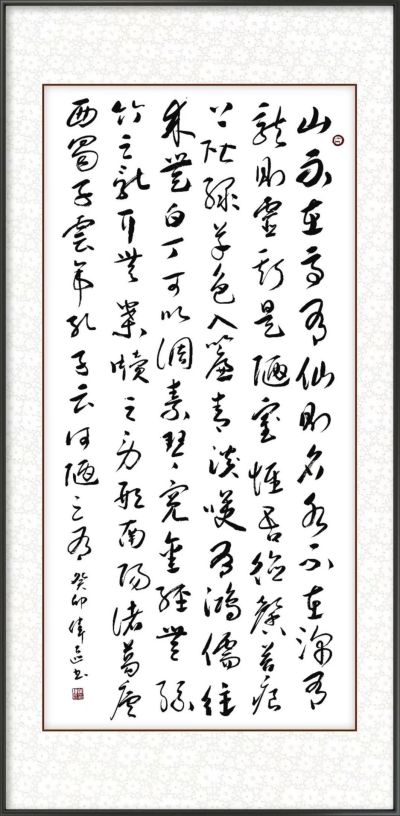 山不在高有仙則名水不在深有
龍則靈斯是陋室惟吾德馨苔痕
上階綠草色入簾青談笑有鴻儒往
來無白丁可以調素琴閱金經無絲
竹之亂耳無案牘之勞形南陽諸葛廬
西蜀子雲亭孔子云何陋之有 癸卯偉書